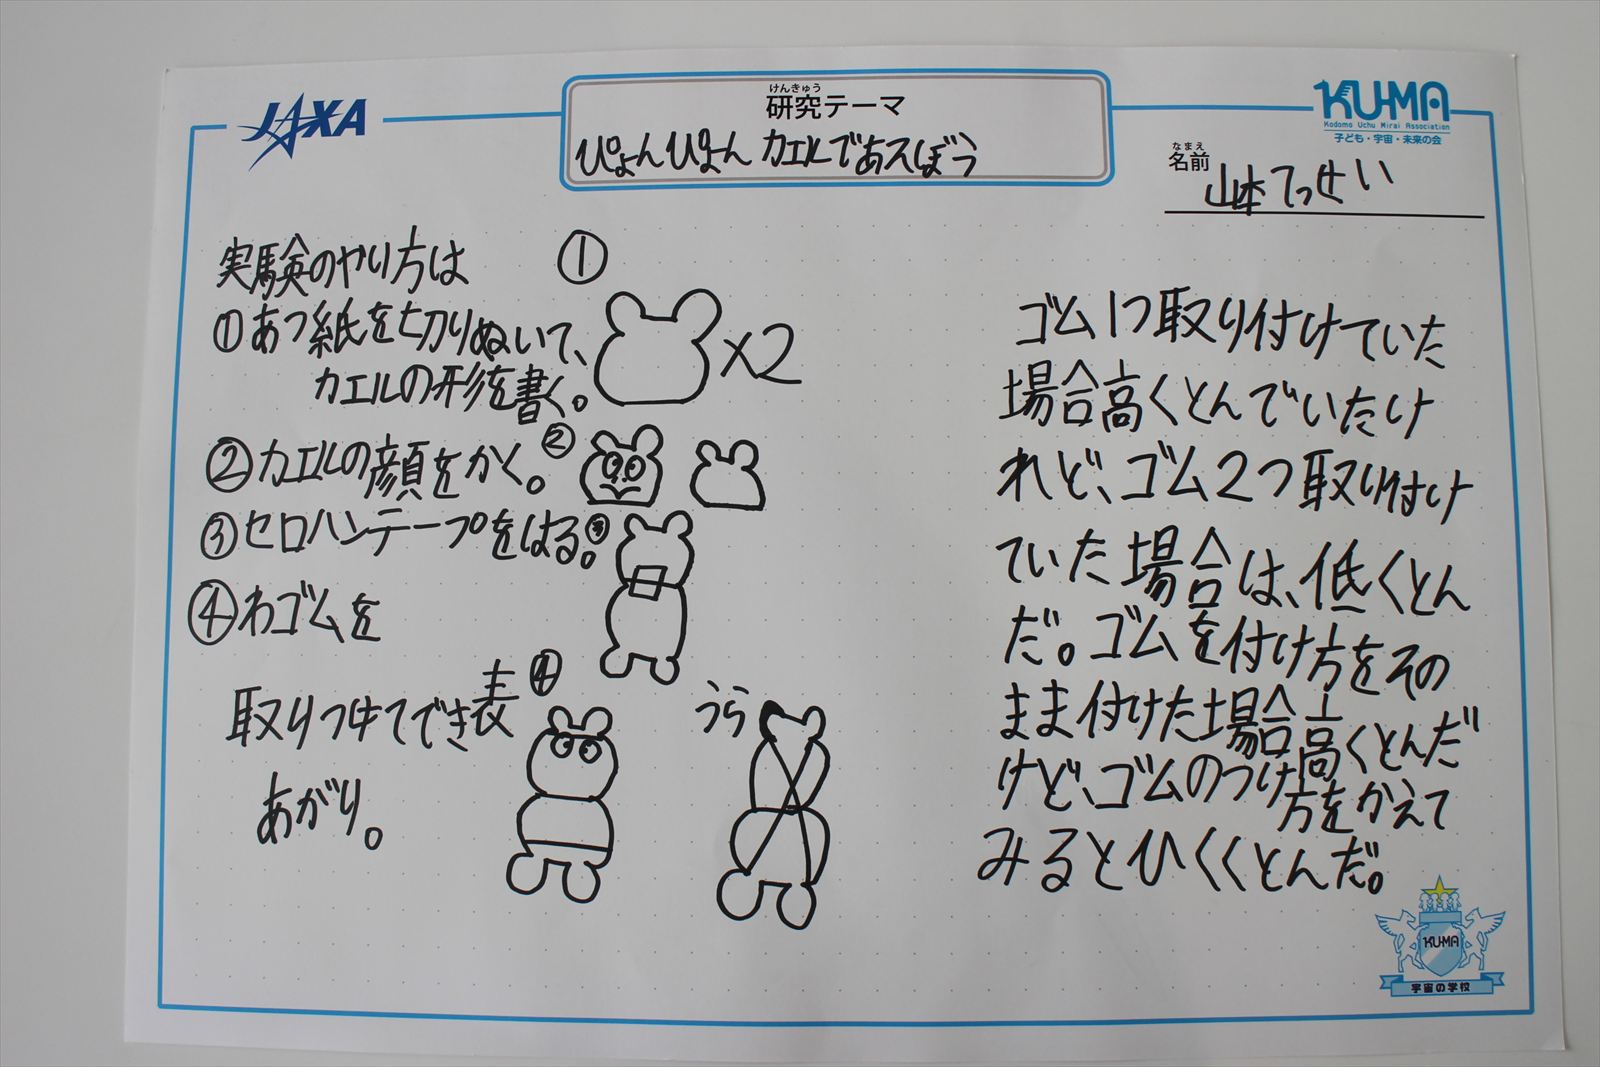 JAXA
けんきゅう
研究テーマ
ぴょんぴょんカエルであそぼう
KU-MA
Kodomo Uchu Mirai Association
子ども・宇宙・未来の会
なまえ
名前 山本てっせい
実験のやり方は
①あつ紙を切りぬいて、
カエルの形を書く。
① ×2
②カエルの顔をかく。
②
③セロハンテープをはる。
③
④わゴムを
取りつけてでき
あがり。
表 ④
うら
ゴム1つ取り付けていた
場合高くとんでいたけ
れど、ゴム2つ取り付け
ていた場合は、低くとん
だ。ゴムを付け方をその
まま付けた場合高くとんだ
けど、ゴムのつけ方をかえて
みるとひくくとんだ。
KU-MA
宇宙の学校